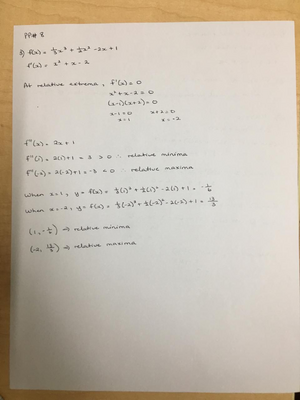 PP# 8
8) f(x) = ⅓x³ + ½x² - 2x + 1
f'(x) = x² + x - 2
At relative extrema, f'(x) = 0
x² + x - 2 = 0
(x-1)(x+2) = 0
x-1=0 x+2=0
x=1 x=-2
f"(x) = 2x + 1
f"(1) = 2(1)+1 = 3 > 0 ∴ relative minima
f"(-2) = 2(-2)+1 = -3 < 0 ∴ relative maxima
When x=1, y = f(x) = ⅓(1)³ + ½(1)² - 2(1) + 1 = -1/6
When x=-2, y = f(x) = ⅓(-2)³ + ½(-2)² - 2(-2) + 1 = 13/3
(1, -1/6) ⇒ relative minima
(-2, 13/3) ⇒ relative maxima